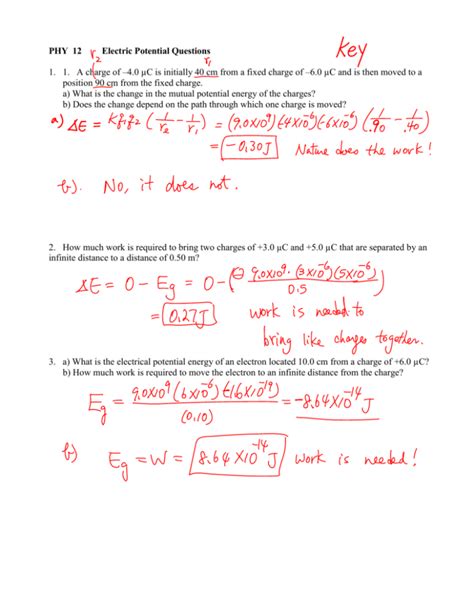 key
PHY 12 r₂ Electric Potential Questions r₁
1. 1. A charge of –4.0 µC is initially 40 cm from a fixed charge of –6.0 µC and is then moved to a
position 90 cm from the fixed charge.
a) What is the change in the mutual potential energy of the charges?
b) Does the change depend on the path through which one charge is moved?
a) ΔE = k q₁ q₂ (1/r₂ - 1/r₁) = (9.0x10⁹)(-4x10⁻⁶)(-6x10⁻⁶)(1/.90 - 1/.40)
= -0.30J Nature does the work!
b). No, it does not.
2. How much work is required to bring two charges of +3.0 µC and +5.0 µC that are separated by an
infinite distance to a distance of 0.50 m?
ΔE = 0 - Eg = 0 - (- 9.0x10⁹·(3x10⁻⁶)(5x10⁻⁶)/0.5)
= 0.27J work is needed to
bring like charges together.
3. a) What is the electrical potential energy of an electron located 10.0 cm from a charge of +6.0 µC?
b) How much work is required to move the electron to an infinite distance from the charge?
Eg = 9.0x10⁹(6x10⁻⁶)(-1.6x10⁻¹⁹)/(0.10) = -8.64x10⁻¹⁴ J
b) Eg = W = 8.64x10⁻¹⁴ J work is needed!